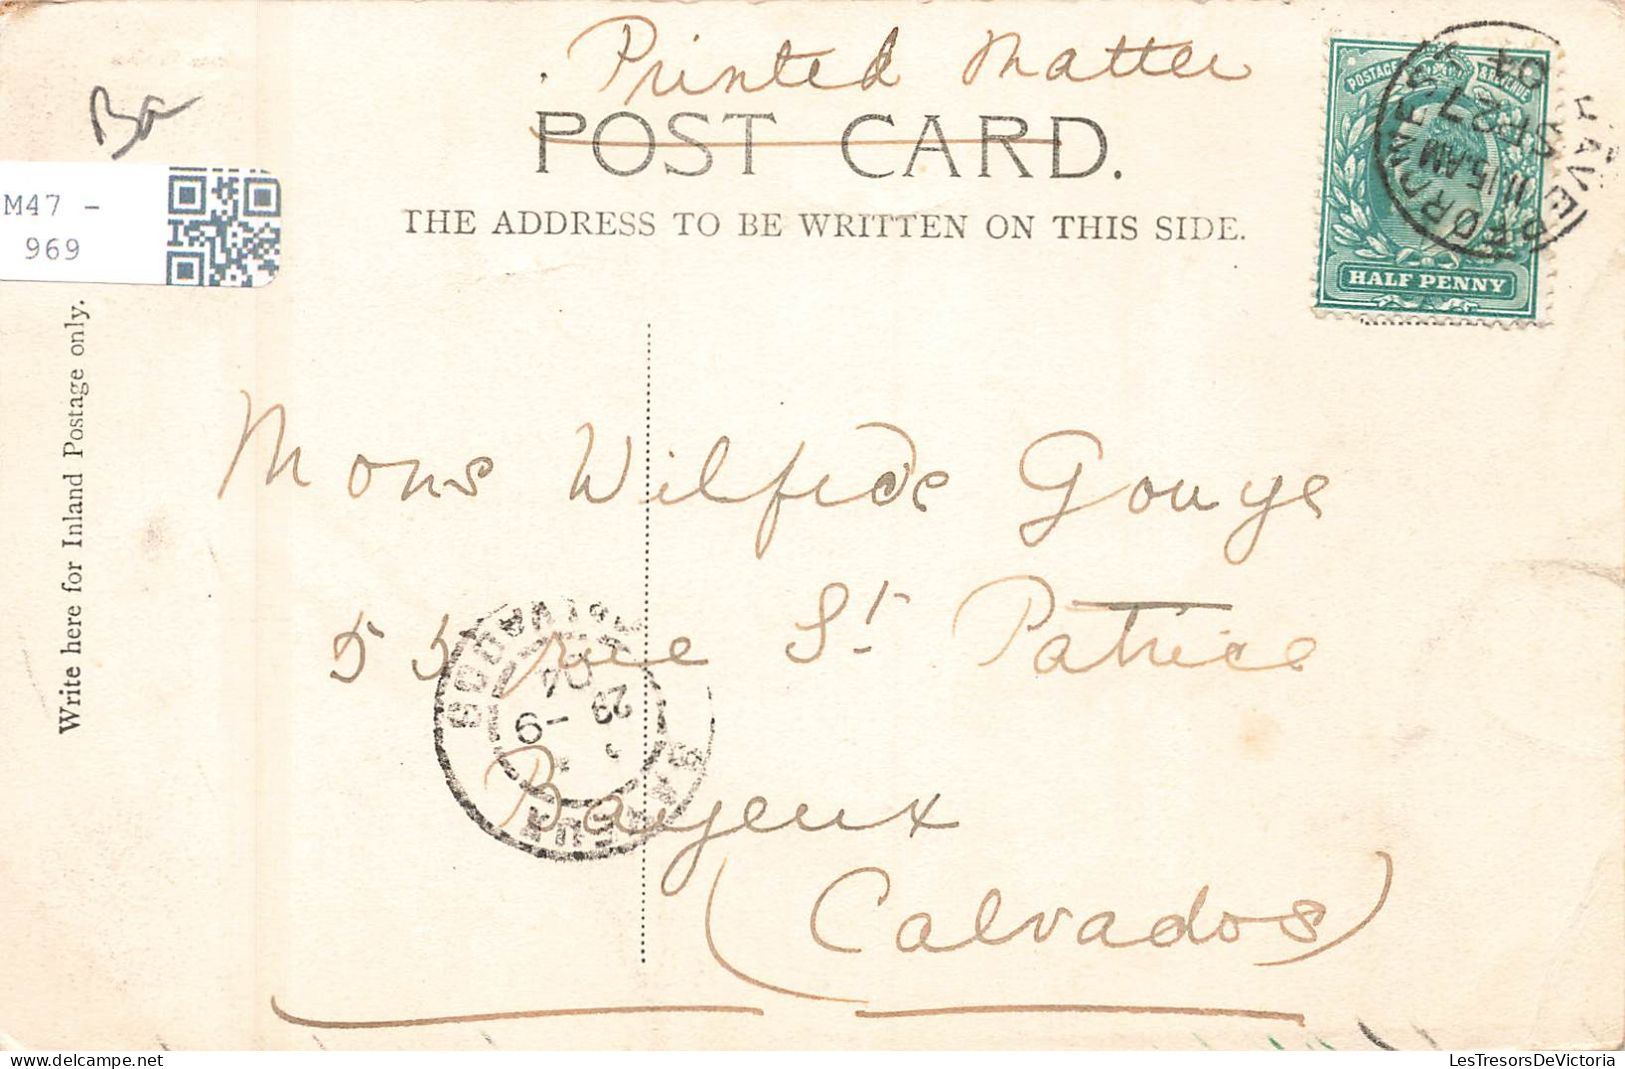 Printed Matter
POST CARD.
THE ADDRESS TO BE WRITTEN ON THIS SIDE.
Ba
M47 -
969
Write here for Inland Postage only.
POSTAGE & REVENUE
HALF PENNY
HAVERFORDWEST
11.15.AM
SP 27
04
Mons Wilfride Gouye
55 rue St Patrice
Bayeux
(Calvados)
BAYEUX
CALVADOS
29 -9
04
LesTresorsDeVictoria